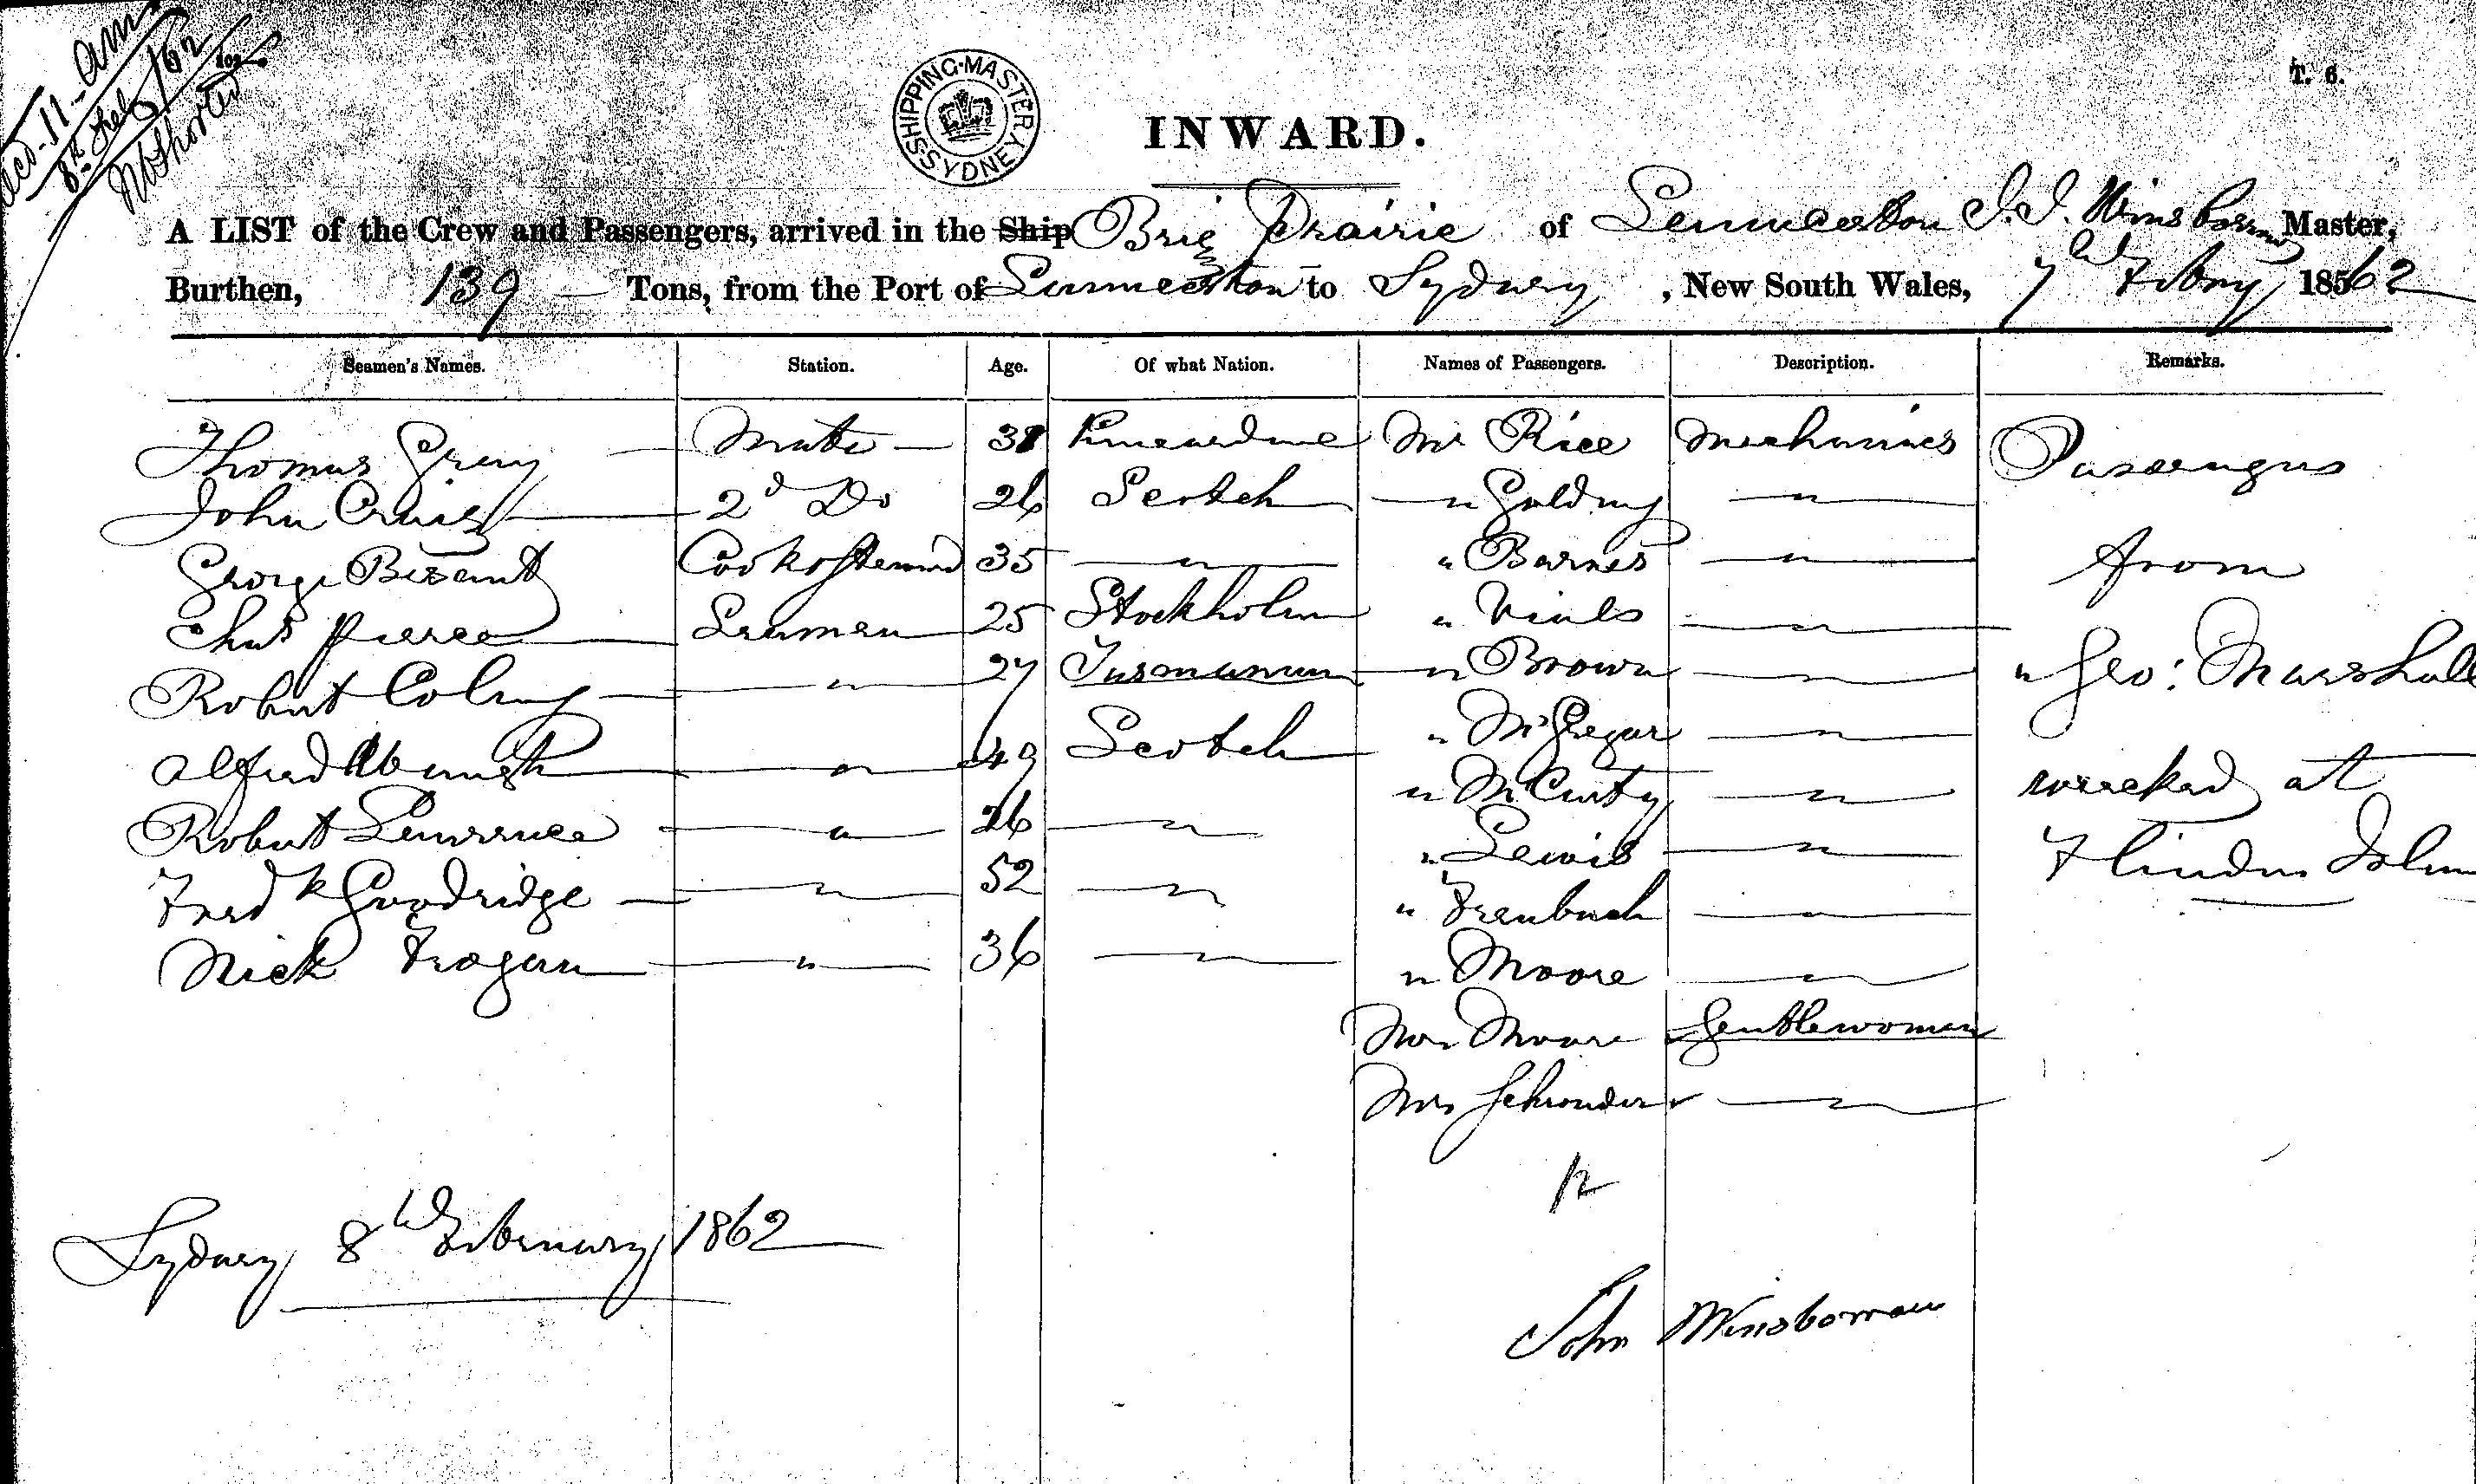 Recd 11 - am
8th Feb /62
T. 6.
SHIPPING·MASTERS SYDNEY
INWARD.
A LIST of the Crew and Passengers, arrived in the Ship Brig Prairie of Launceston J. J. Winsborrow Master,
Burthen, 139 Tons, from the Port of Launceston to Sydney, New South Wales, 7 Febry 1862
Seamen's Names. Station. Age. Of what Nation. Names of Passengers. Description. Remarks.
Thomas Gray Mate 38 Kincardine Mr Rice Mechanics Passengers
John Craig 2d Do 26 Scotch " Golding "
George Bezant Cook & Steward 35 " " Barnes " from
Chas Pierce Seaman 25 Stockholm " Vials "
Robert " 27 Tasmanian " Brown " " Geo: Marshall
Alfred " 49 Scotch " McGregor "
" McCarty " wrecked at
Robert Lawrence " 26 " " Lewis " Flinders Islan
Fredk Goodridge " 52 " " "
Nick Fragan " 36 " " Moore "
Mrs Moore Gentlewoman
Mrs Schrouder "
12
Sydney 8th February 1862
John Winsborrow